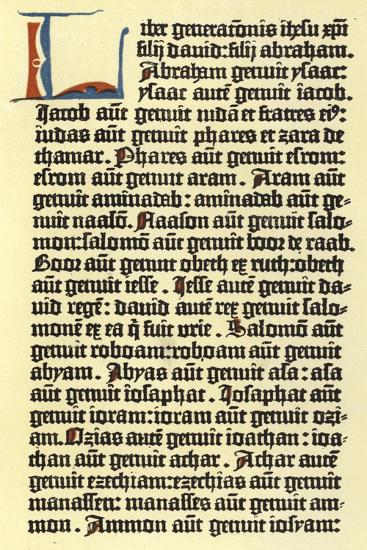 Liber generatōnis ihesu xp̄i
filij david: filij abraham.
Abraham genuit ysaac:
ysaac autē genuit iacob.
Jacob aūt genuit iudā et fratres eiꝰ:
iudas aūt genuit phares et zara de
thamar. Phares aūt genuit esrom:
esrom aūt genuit aram. Aram aūt
genuit aminadab: aminadab aūt ge-
nuit naasō. Naason aūt genuit salo-
mon: salomō aūt genuit booz de raab.
Booz aūt genuit obeth ex ruth: obeth
aūt genuit iesse. Jesse autē genuit da-
vid regē: david autē rex genuit salo-
monē ex ea q̄ fuit urie. Salomō aūt
genuit roboam: roboam aūt genuit
abyam. Abyas aūt genuit asa: asa
aūt genuit iosaphat. Josaphat aūt
genuit ioram: ioram aūt genuit ozi-
am. Ozias autē genuit ioathan: ioa-
than aūt genuit achaz. Achaz autē
genuit ezechiam: ezechias aūt genuit
manassen: manasses aūt genuit am-
mon. Ammon aūt genuit iosyam: